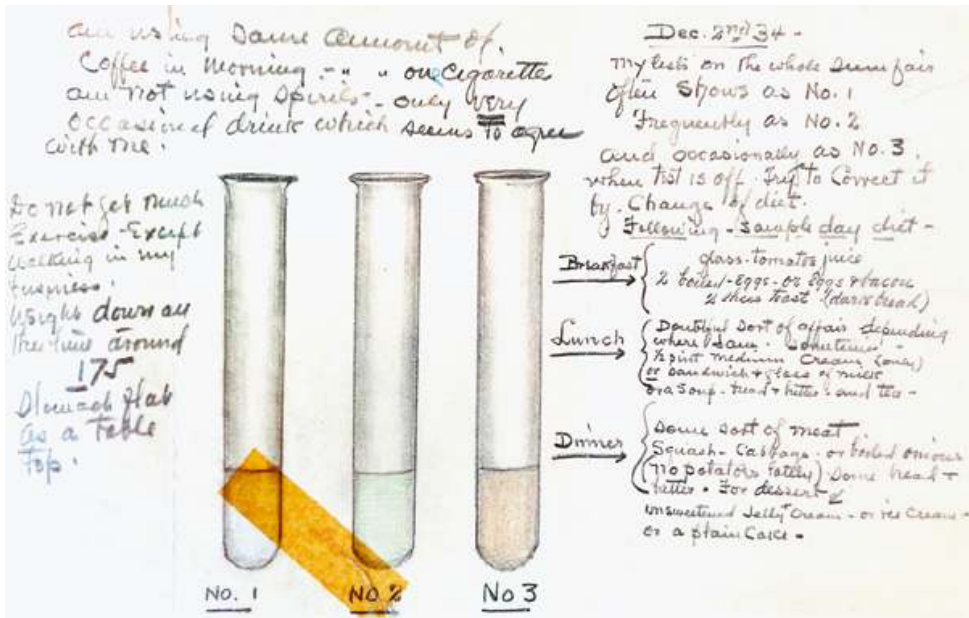 am using same amount of
Coffee in morning - " " on Cigarette
am not using spirits - only very
occasional drink which seems to agree
with me.
Do not get much
Exercise - Except
walking in my
business.
Weight down all
the time around
175
Stomach flat
as a Table
Top.
No. 1
No 2
No 3
Dec. 2nd 34 -
my tests on the whole seem fair
often shows as No. 1
Frequently as No. 2
and occasionally as No. 3.
when test is off. Try to Correct it
by. Change of diet.
Following - sample day diet -
Breakfast
glass - tomatoe juice
2 boiled - Eggs - or Eggs & bacon
2 slices toast (dark bread)
Lunch
Doubtful sort of affair depending
where I am. Sometimes -
½ pint medium Cream (only)
or sandwich & glass of milk
or a soup - bread & butter and tea -
Dinner
Some sort of meat
Squash - Cabbage - or boiled onions
(No potatoes lately) Some bread +
butter. For dessert
unsweetened Jelly Cream - or ice Cream -
or a plain Cake -